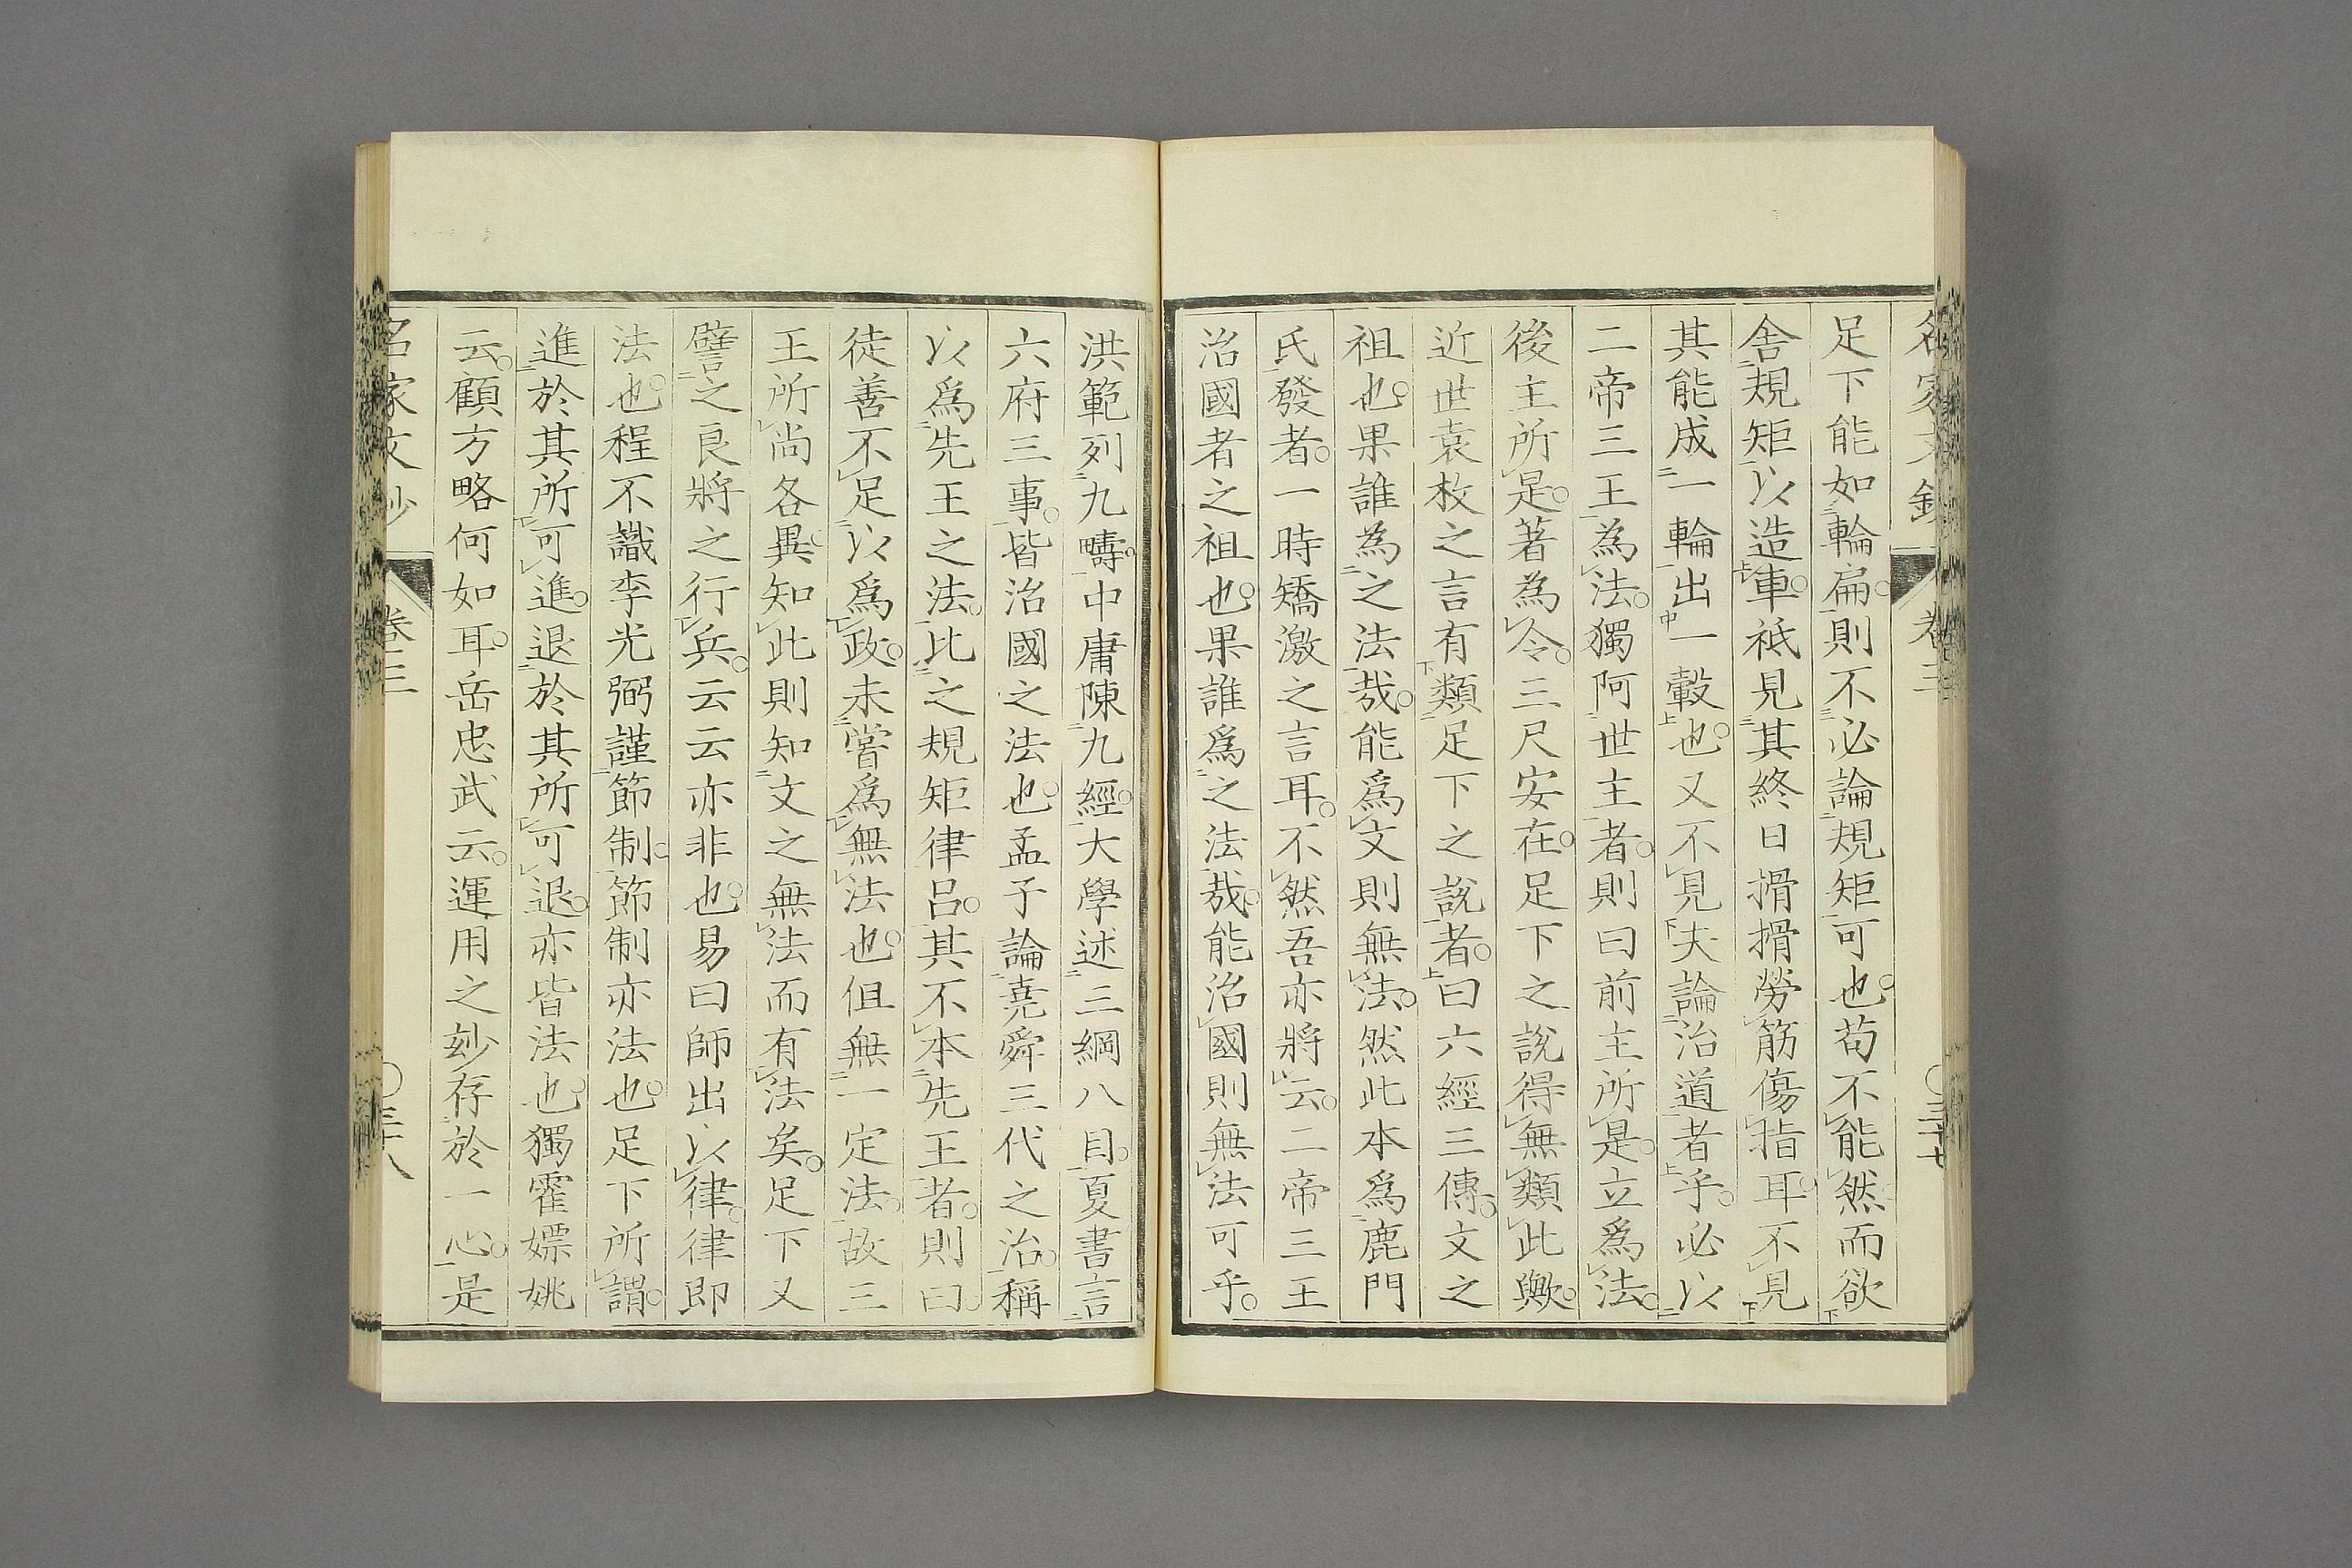 足下能如輪扁則不必論規矩可也苟不能然而欲
舍規矩以造車祗見其終日搰搰勞筋傷指耳不見
其能成一輪出一轂也又不見夫論治道者乎必以
二帝三王為法獨阿世主者則曰前主所是立爲法
後主所是著為令三尺安在足下之說得無類此歟
近世袁枚之言有類足下之說者曰六經三傳文之
祖也果誰為之法哉能爲文則無法然此本爲鹿門
氏發者一時矯激之言耳不然吾亦將云二帝三王
治國者之祖也果誰爲之法哉能治國則無法可乎
洪範列九疇中庸陳九經大學述三綱八目夏書言
六府三事皆治國之法也孟子論堯舜三代之治稱
以爲先王之法比之規矩律呂其不本先王者則曰
徒善不足以爲政未嘗爲無法也但無一定法故三
王所尚各異知此則知文之無法而有法矣足下又
譬之良將之行兵云云亦非也易曰師出以律律即
法也程不識李光弼謹節制節制亦法也足下所謂
進於其所可進退於其所可退亦皆法也獨霍嫖姚
云顧方略何如耳岳忠武云運用之妙存於一心是
名家文鈔
卷三
三十八